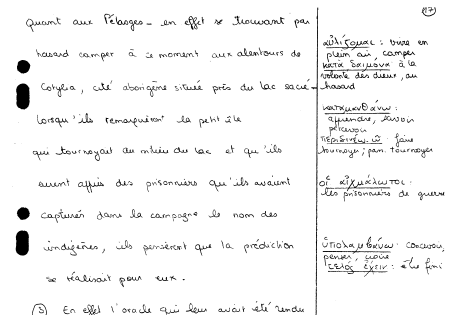 (17)
quant aux Pélasges _ en effet se trouvant par
hasard camper à ce moment aux alentours de
Cotylia, cité aborigène située près du lac sacré _
lorsqu'ils remarquèrent la petite île
qui tournoyait au milieu du lac et qu'ils
eurent appris des prisonniers qu'ils avaient
capturés dans la campagne le nom des
indigènes, ils pensèrent que la prédiction
se réalisait pour eux.
③ En effet l'oracle qui leur avait été rendu
αὐλίζομαι : vivre en
plein air, camper
κατὰ δαίμονα à la
volonté des dieux, au
hasard
καταμανθάνω :
apprendre, savoir
percevoir
faire
tournoyer ; pass. tournoyer
οἱ αἰχμάλωτοι :
les prisonniers de guerre
ὑπολαμβάνω concevoir,
penser, croire
τέλος ἔχειν : être fini